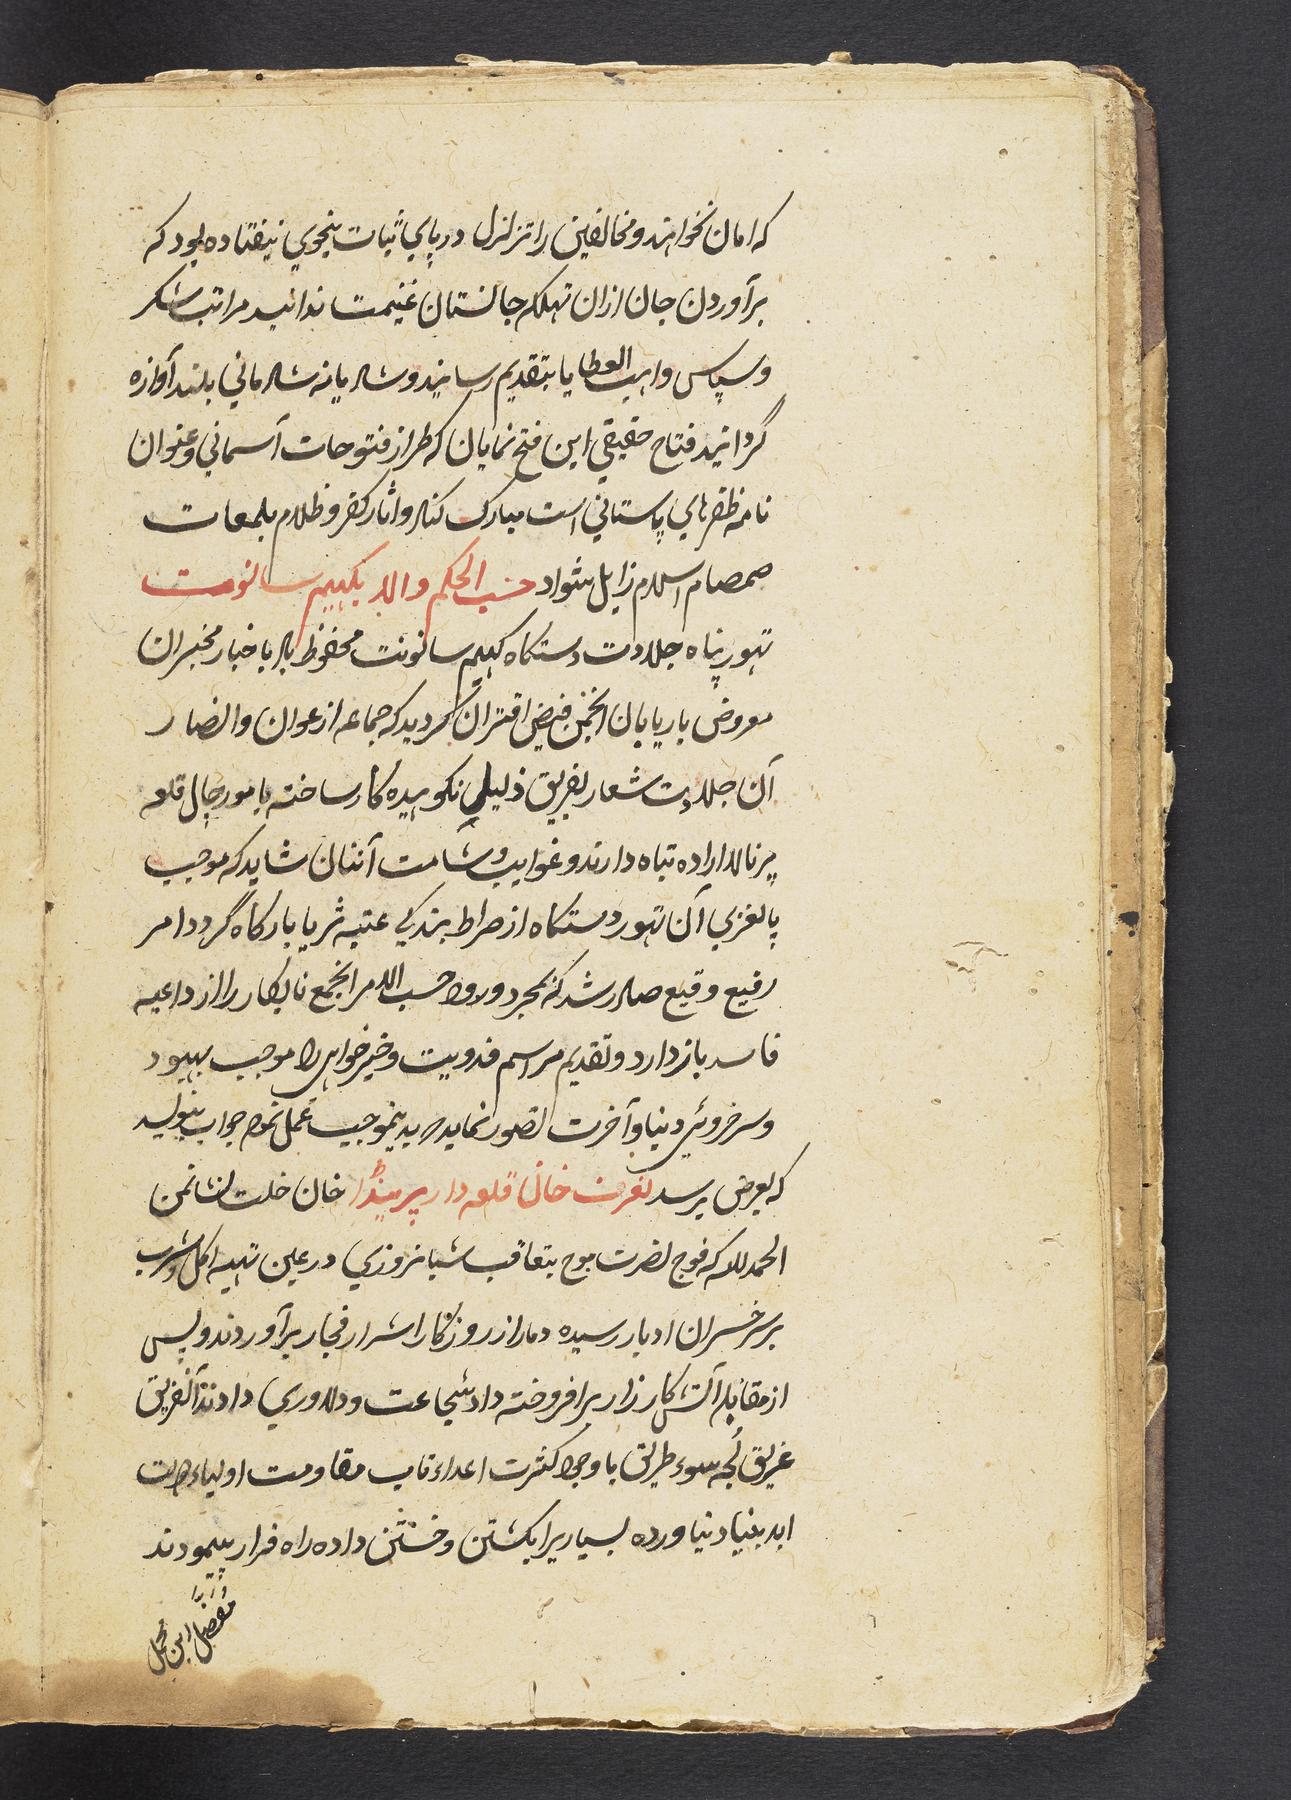 که امان نخواهند و مخالفین را تزلزل در پای ثبات بنحوی نیفتاده بود که
برآوردن جان ازان تهلکه جانستان غنیمت ندانید مراتب شکر
و سپاس واهب العطایا بتقدیم رسانیدند و شادیانه شادمانی بلند آوازه
گردانید فتاح حقیقی این فتح نمایان که طراز فتوحات آسمانی و عنوان
نامه ظفرهای باستانی است مبارک کناد و آثار کفر و ظلام بلمعات
صمصام اسلام زایل شواد حسب الحکم والا بکهیم سانونت
تهور پناه جلادت دستگاه کهیم سانونت محفوظ باد باخبار مخبران
معروض باریابان انجمن فیض اقتران گردید که جماعه از عوان و انصار
آن جلادت شعار بفریق ذلیل نکوهیده کار ساخته بامورچال قلعه
پرنالا اراده تباه دارند و غوایت و شامت آنان شاید که موجب
پالغزی آن تهور دستگاه از صراط بندگی عتبه ثریا بارگاه گردد امر
رفیع وقیع صادر شد که بمجرد ورود حسب الامر انجمع نابکار را از داعیه
فاسد باز دارد و تقدیم مراسم فدویت و خیرخواهی را موجب بهبود
و سرخروئی دنیا و آخرت تصور نماید بدینموجب عمل نموده جواب بنویسد
که بعرض برسد لغرت خان قلعه دار پرینڈا خان خلت نشانمن
الحمد لله که فوج نصرت موج بتعاقب شبانروزی در عین تهیه اکل و شرب
بر سر خسران ادبار رسیده دمار از روزگار اشرار فجار برآوردند و پس
از مقابله آتش کارزار برافروخته داد شجاعت و دلاوری دادند آنفریق
غریق لجه سوء طریق با وجود کثرت اعداد تاب مقاومت اولیاء دولت
ابد بنیاد نیاورده بسیاریرا بکشتن و خستن داده راه فرار پیمودند
مفصل این مجمل